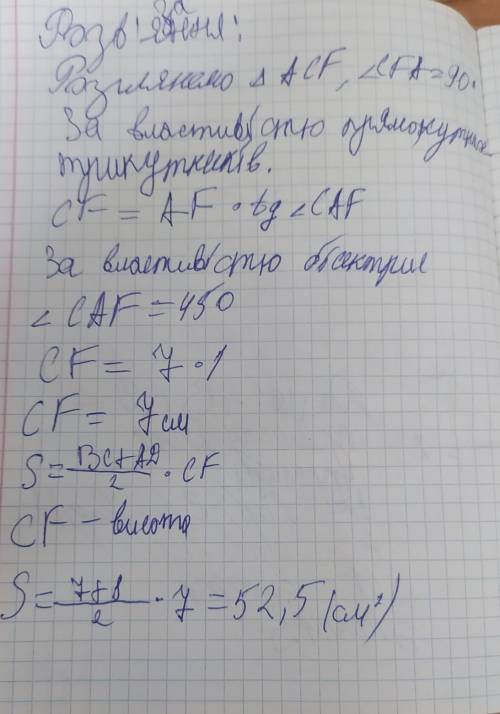 Розв'язання:
Розглянемо △ ACF, ∠CFA=90.
За властивістю прямокутних
трикутників.
CF = AF · tg ∠CAF
За властивістю бісектрис
∠ CAF = 450
CF = 7 · 1
CF = 7 см
S = BC+AD/2 · CF
CF – висота
S = 7+8/2 · 7 = 52,5 (см²)